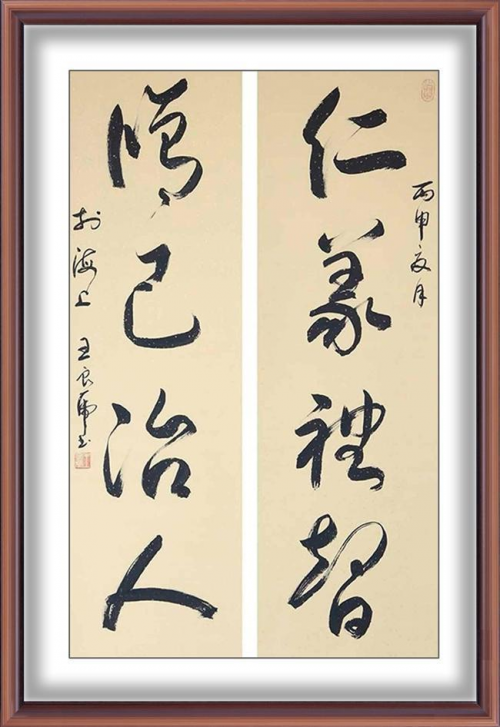 丙申夏月
仁義禮智
修己治人
於海上 王良虎书